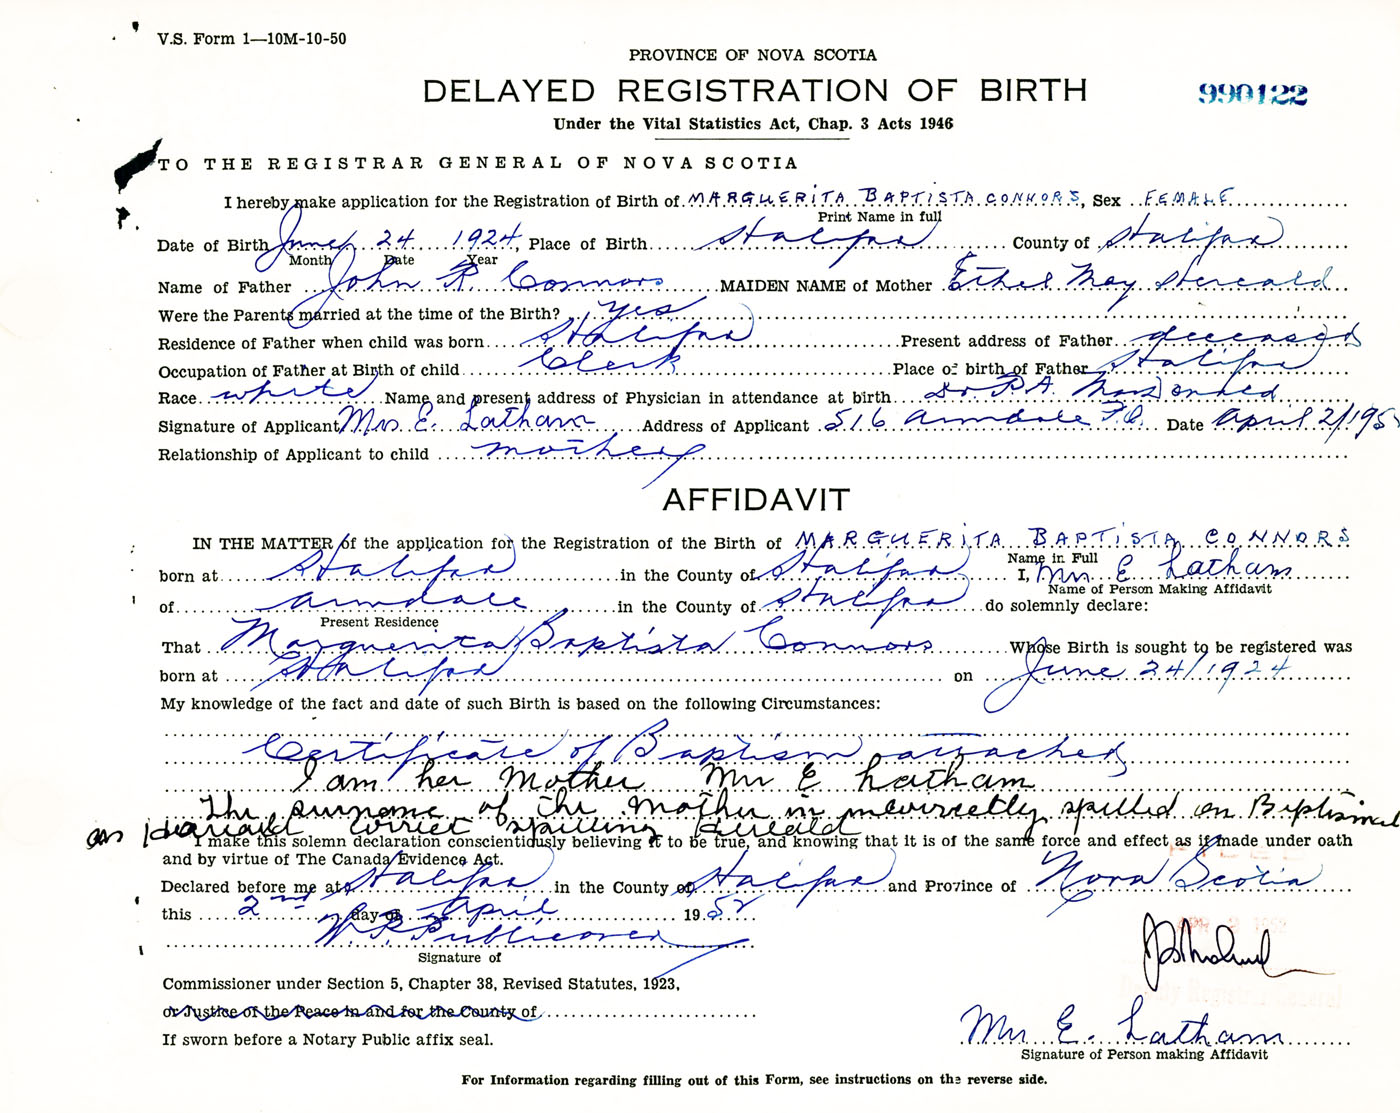 V.S. Form 1—10M-10-50
PROVINCE OF NOVA SCOTIA
DELAYED REGISTRATION OF BIRTH
990122
Under the Vital Statistics Act, Chap. 3 Acts 1946
TO THE REGISTRAR GENERAL OF NOVA SCOTIA
I hereby make application for the Registration of Birth of MARGUERITA BAPTISTA CONNORS, Sex FEMALE
Print Name in full
Date of Birth June 24 1924, Place of Birth Halifax County of Halifax
Month Date Year
Name of Father John R Connors MAIDEN NAME of Mother Ethel May Hereald
Were the Parents married at the time of the Birth? yes
Residence of Father when child was born Halifax Present address of Father deceased
Occupation of Father at Birth of child Clerk Place of birth of Father Halifax
Race white Name and present address of Physician in attendance at birth Dr. P.A. MacDonald
Signature of Applicant Mrs E. Latham Address of Applicant 516 Armdale P.O. Date April 2/195
Relationship of Applicant to child mother
AFFIDAVIT
IN THE MATTER of the application for the Registration of the Birth of MARGUERITA BAPTISTA CONNORS
Name in Full
born at Halifax in the County of Halifax I, Mrs E Latham
Name of Person Making Affidavit
of Armdale in the County of Halifax do solemnly declare:
Present Residence
That Marguerita Baptista Connors Whose Birth is sought to be registered was
born at Halifax on June 24/1924
My knowledge of the fact and date of such Birth is based on the following Circumstances:
Certificate of Baptism attached
I am her Mother Mrs E Latham
The surname of the Mother is incorrectly spilled on Baptismal
as correct spilling Hereald
I make this solemn declaration conscientiously believing it to be true, and knowing that it is of the same force and effect as if made under oath
and by virtue of The Canada Evidence Act.
Declared before me at Halifax in the County of Halifax and Province of Nova Scotia
this 2nd day of April 1952
W.R. Publicover
Signature of
Commissioner under Section 5, Chapter 38, Revised Statutes, 1923,
or Justice of the Peace in and for the County of
If sworn before a Notary Public affix seal.
Deputy Registrar General
Mrs E. Latham
Signature of Person making Affidavit
For Information regarding filling out of this Form, see instructions on the reverse side.